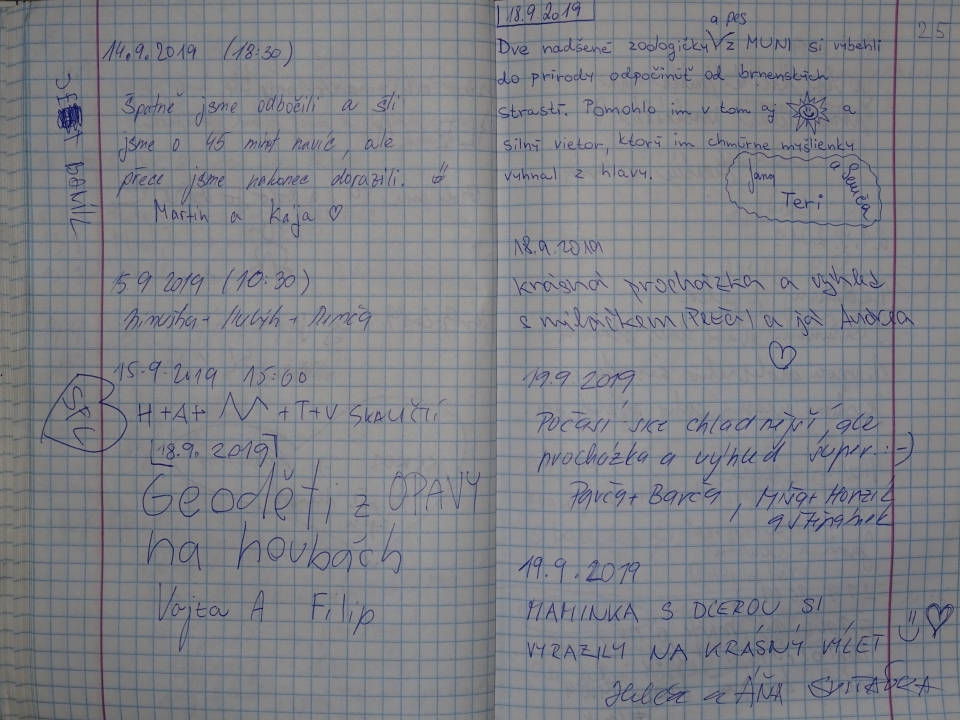 14.9.2019 (18:30)
Špatně jsme odbočili a šli
jsme o 45 minut navíc, ale
přece jsme nakonec dorazili.
Martin a Kája ♡
15.9 2019 (10:30)
15.9.2019 15:00
H+A+ +T+V SKAUČTÍ
18.9. 2019
Geoděti z OPAVY
na houbách
Vojta A Filip
18.9.2019
25
a pes
Dve nadšené zoologičky √z MUNI si vybehli
do prírody odpočinúť od brnenských
strastí. Pomohlo im v tom aj a
silný vietor, ktorý im chmúrne myšlienky
vyhnal z hlavy.
Jana
Teri
18.9.2019
krásná procházka a výhled
s miláčkem (Péťa) a já Andrea
♡
19.9.2019
Počasí sice chladnější, ale
procházka a výhled super. :-)
Pavča + Barča, Míňa + Honzík
19.9.2019
MAMINKA S DCEROU SI
VYRAZILY NA KRÁSNÝ VÝLET
a ÁŇA